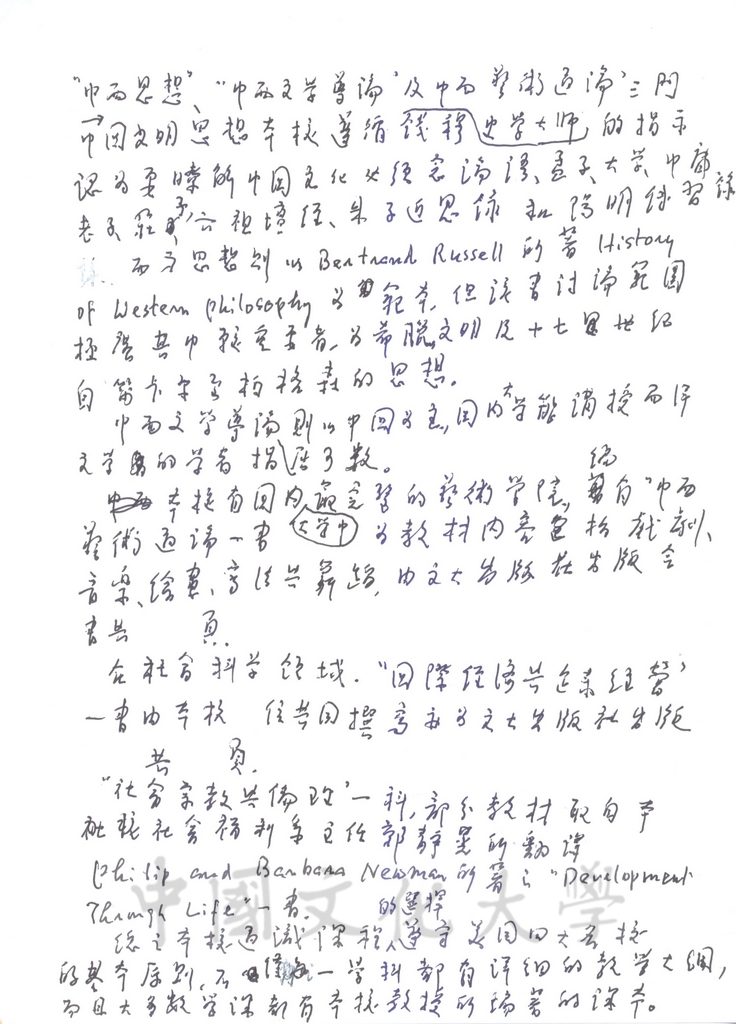 "中西思想"、"中西文學導論"及中西藝術通論"三門
中國文明思想本校遵循錢穆史學大師的指示
認為要瞭解中國文化必須念論語、孟子、大學、中庸
老子、莊子、六祖壇經、朱子近思錄和陽明傳習錄
西方思想則以Bertrand Russell的著History
of Western philosophy為範本,但該書討論範圍
極廣其中較重要者為希臘文明及十七世紀
自笛卡尔至柏格森的思想。
中西文學導論則以中國為主,國內大學能講授西洋
文學的學者指屈可數。
本校有國內最完整的藝術學院,編有"中西
藝術通論"一書 大學中 為教材內容包括戲劇、
音樂、繪畫、書法共 由文大出版社出版全
書共 頁.
在社會科學領域."國際經濟與企業經營"
一書由本校 位共同撰寫亦為文大出版社出版
共 頁.
"社會宗教與倫理"一科,部分教材取自本
校社會福利系主任郭靜晃所翻譯
Philip and Barbara Newman所著之"Development
Through Life"一書. 的選擇
總之本校通識課程遵守美國四大名校
的基本原則,不僅每一學科都有詳細的教學大綱,
而且大多數學課都有本校教授所編著的課本。
中國文化大學